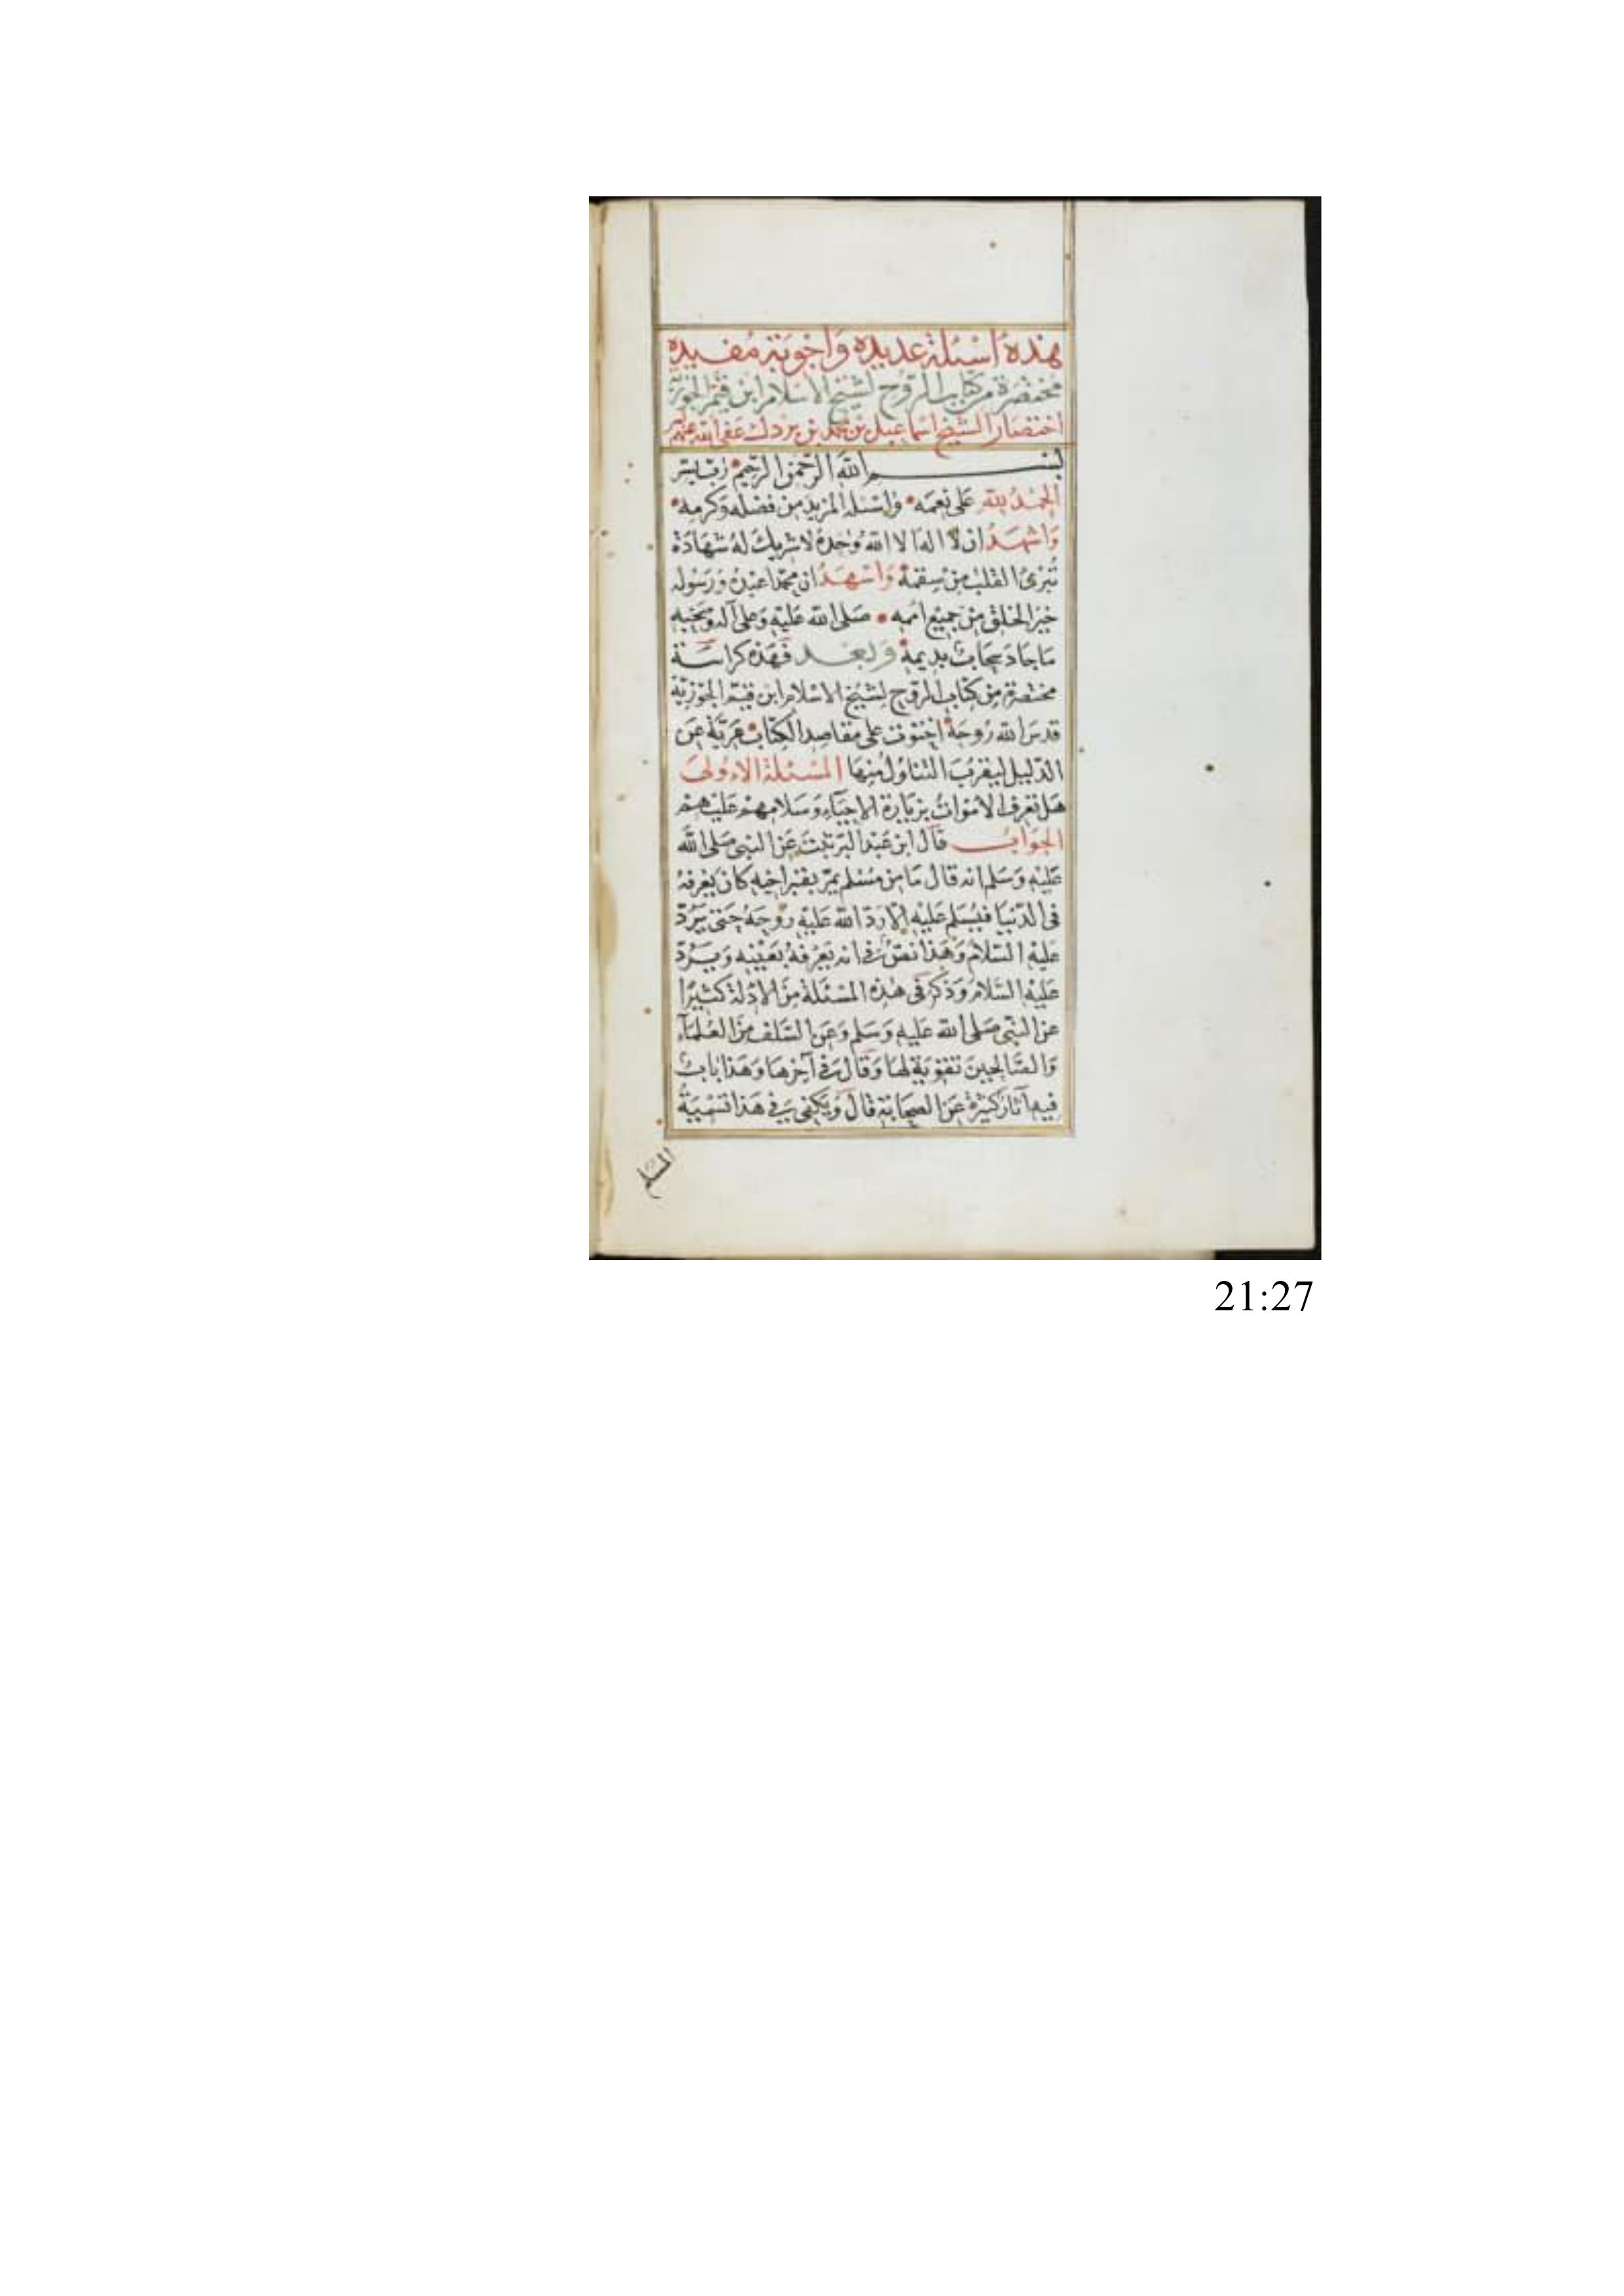 هذه اسئلة عديده واجوبة مفيده
مختصرة من كتاب الروح لشيخ الاسلام ابن قيم الجوزية
اختصار الشيخ اسماعيل بن محمد بن بردك عفى الله عنهم
بسم الله الرحمن الرحيم رب يسر
الحمد لله على نعمه واسئله المزيد من فضله وكرمه
واشهد ان لا اله الا الله وحده لا شريك له شهادة
تبرئ القلب من سقمه واشهد ان محمدا عبده ورسوله
خير الخلق من جميع اممه صلى الله عليه وعلى آله وصحبه
ما جاد سحاب بديمه وبعد فهذه كراسة
مختصرة من كتاب الروح لشيخ الاسلام ابن قيم الجوزية
قدس الله روحه احتوت على مقاصد الكتاب عرية عن
الدليل ليقرب التناول منها المسئلة الاولى
هل تعرف الاموات بزيارة الاحياء وسلامهم عليهم
الجواب قال ابن عبد البر ثبت عن النبي صلى الله
عليه وسلم انه قال ما من مسلم يمر بقبر اخيه كان يعرفه
في الدنيا فيسلم عليه الا رد الله عليه روحه حتى يرد
عليه السلام وهذا نص في انه يعرفه بعينه ويرد
عليه السلام وذكر في هذه المسئلة من الادلة كثيرا
عن النبي صلى الله عليه وسلم وعن السلف من العلماء
والصالحين تقوية لها وقال في آخرها وهذا باب
فيه آثار كثيرة عن الصحابة قال ويكفي في هذا تسمية
المسلم
21:27